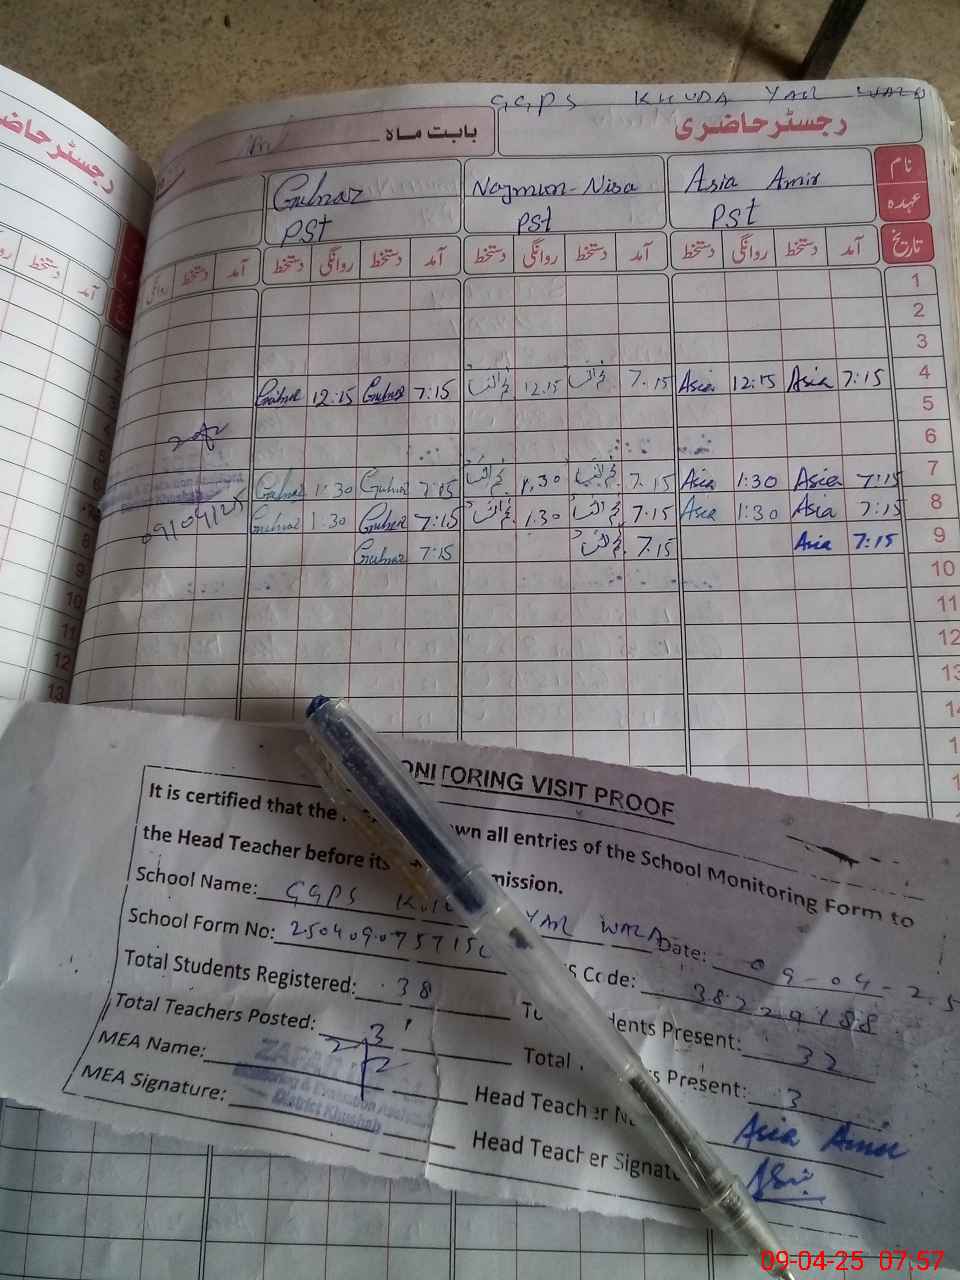 GGPS KHUDA YAR WALA
رجسٹر حاضری
بابت ماہ
رجسٹر حاضری
نام
عہدہ
Asia Amir
Najmun-Nisa
Gulnaz
PST
PST
PST
تاریخ
آمد دستخط روانگی دستخط آمد دستخط روانگی دستخط آمد دستخط روانگی دستخط آمد دستخط روانگی
آمد دستخط
1
2
3
4 7:15 Asia 12:15 Asia 7.15 12.15 7:15 Gulnaz 12:15 Gulnaz
5
6
7 7:15 Asia 1:30 Asia 7.15 1.30 7:15 Gulnaz 1:30 Gulnaz
8 7:15 Asia 1:30 Asia 7.15 1.30 7:15 Gulnaz 1:30 Gulnaz
9 7:15 Asia 7.15 7:15 Gulnaz
09/04/25
10
11
12
13
14
10
11
12
13
MONITORING VISIT PROOF
It is certified that the own all entries of the School Monitoring Form to
the Head Teacher before its mission.
School Name: GGPS YAR WALA Date: 09-04-25
School Form No: Code: 38229188
Total Students Registered: 38 dents Present: 32
Total Teachers Posted: 3 Total Present: 3
MEA Name: Head Teacher Asia Amir
MEA Signature: Head Teacher Signatu Asia
ZAFAR
Monitoring & Evaluation Assistant
District Khushab
09-04-25 07:57